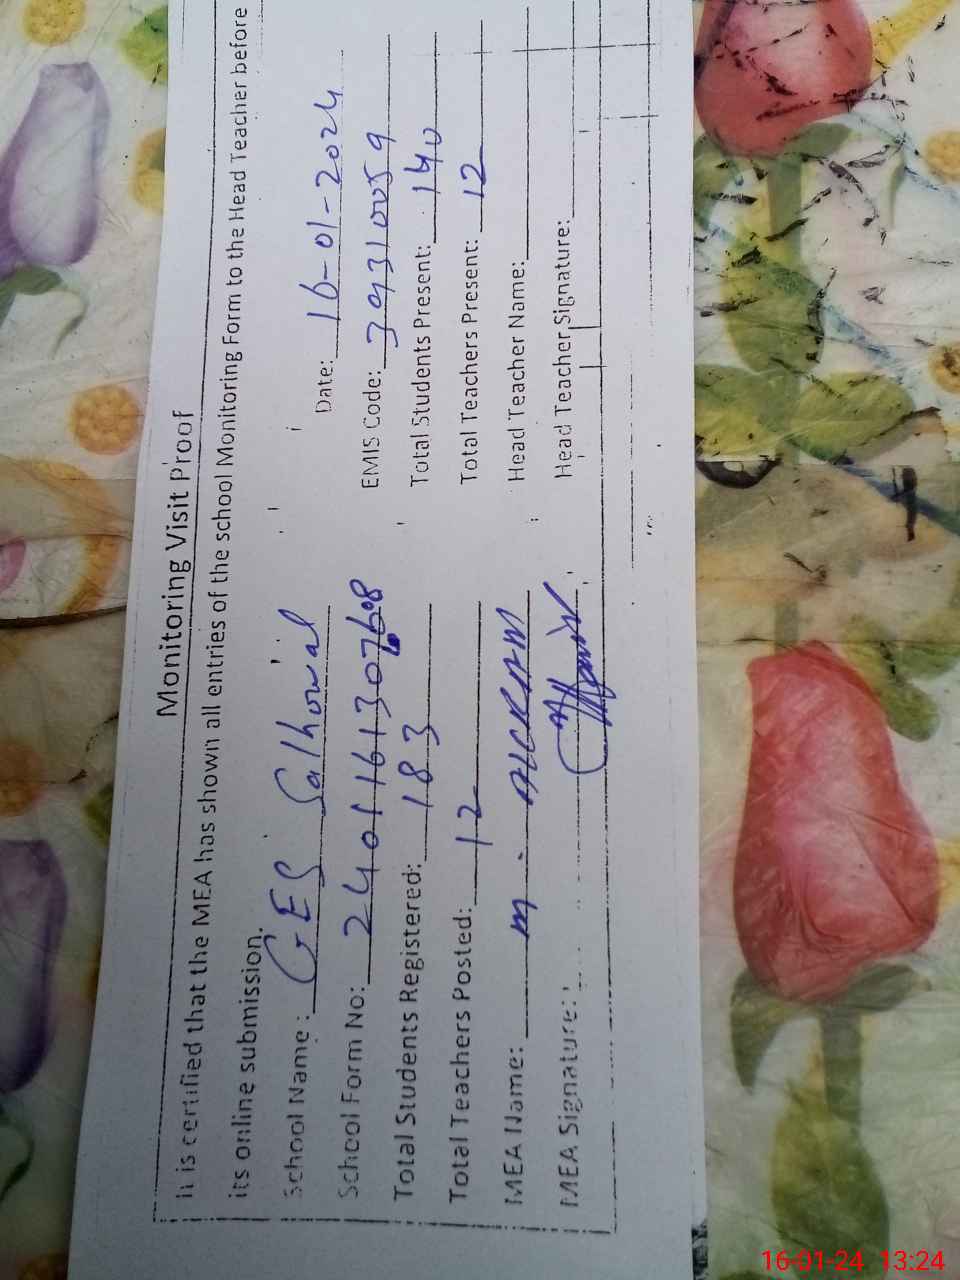 Monitoring Visit Proof
It is certified that the MEA has shown all entries of the school Monitoring Form to the Head Teacher before
its online submission.
School Name: GES Salhowal Date: 16-01-2024
School Form No: EMIS Code: 39310059
Total Students Registered: 183 Total Students Present: 140
Total Teachers Posted: 12 Total Teachers Present: 12
MEA Name: M. AKRAM Head Teacher Name:
MEA Signature: Head Teacher Signature:
16-01-24 13:24